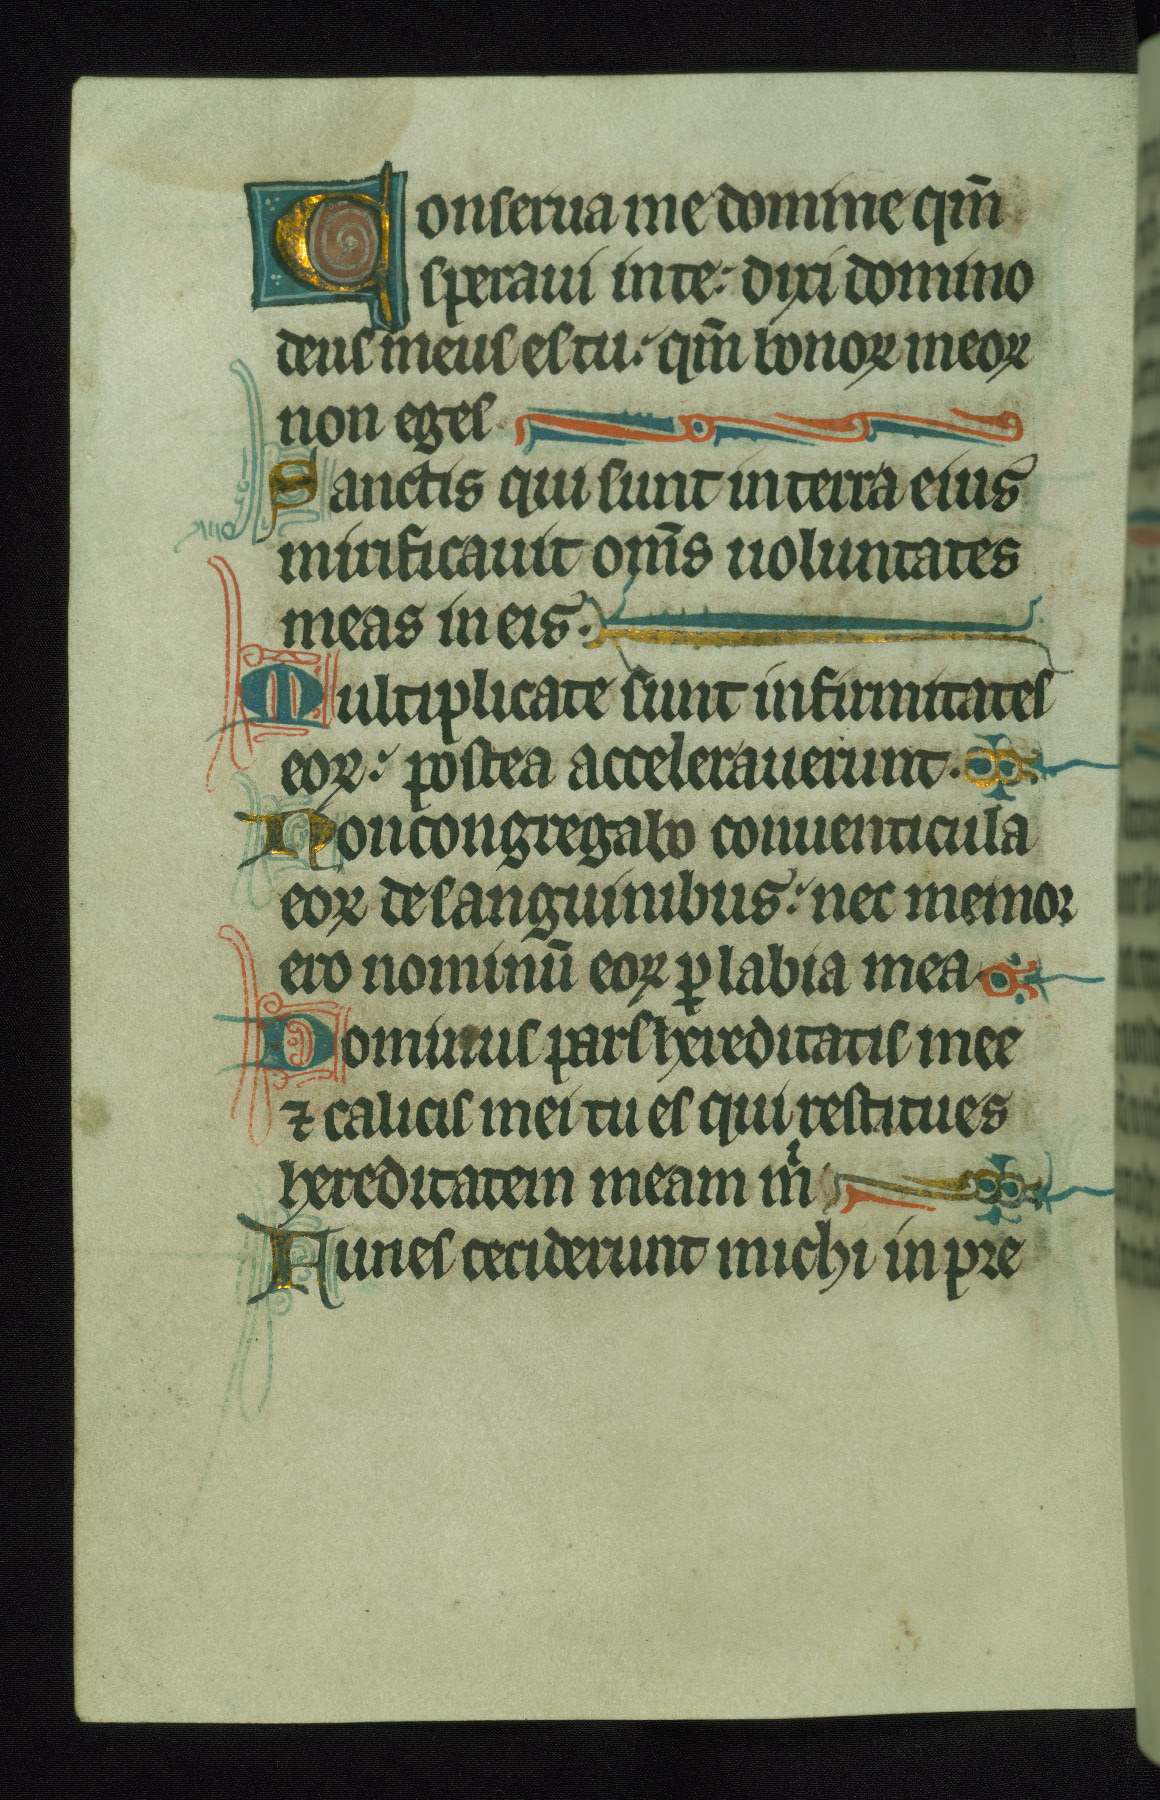 Conserua me domine qm̄
speraui in te: dixi domino
deus meus es tu: qm̄ bonoꝝ meoꝝ
non eges
Sanctis qui sunt in terra eius
mirificauit om̄s uoluntates
meas in eis.
Multiplicate sunt infirmitates
eoꝝ: postea accelerauerunt.
Non congregabo conuenticula
eoꝝ de sanguinibus: nec memor
ero nominū eoꝝ ꝑ labia mea
Dominus pars hereditatis mee
⁊ calicis mei tu es qui restitues
hereditatem meam m̊i
Funes ceciderunt michi in pre